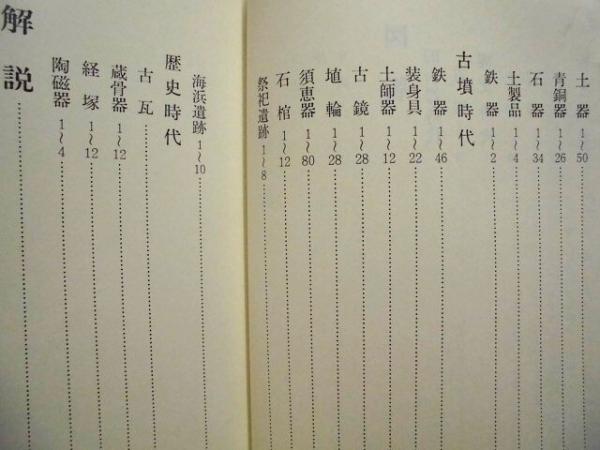 土器 1〜50
青銅器 1〜26
石器 1〜34
土製品 1〜4
鉄器 1〜2
古墳時代
鉄器 1〜46
装身具 1〜22
土師器 1〜12
古鏡 1〜28
埴輪 1〜28
須恵器 1〜80
石棺 1〜12
祭祀遺跡 1〜8
海浜遺跡 1〜10
歴史時代
古瓦
蔵骨器 1〜12
経塚 1〜12
陶磁器 1〜4
解説